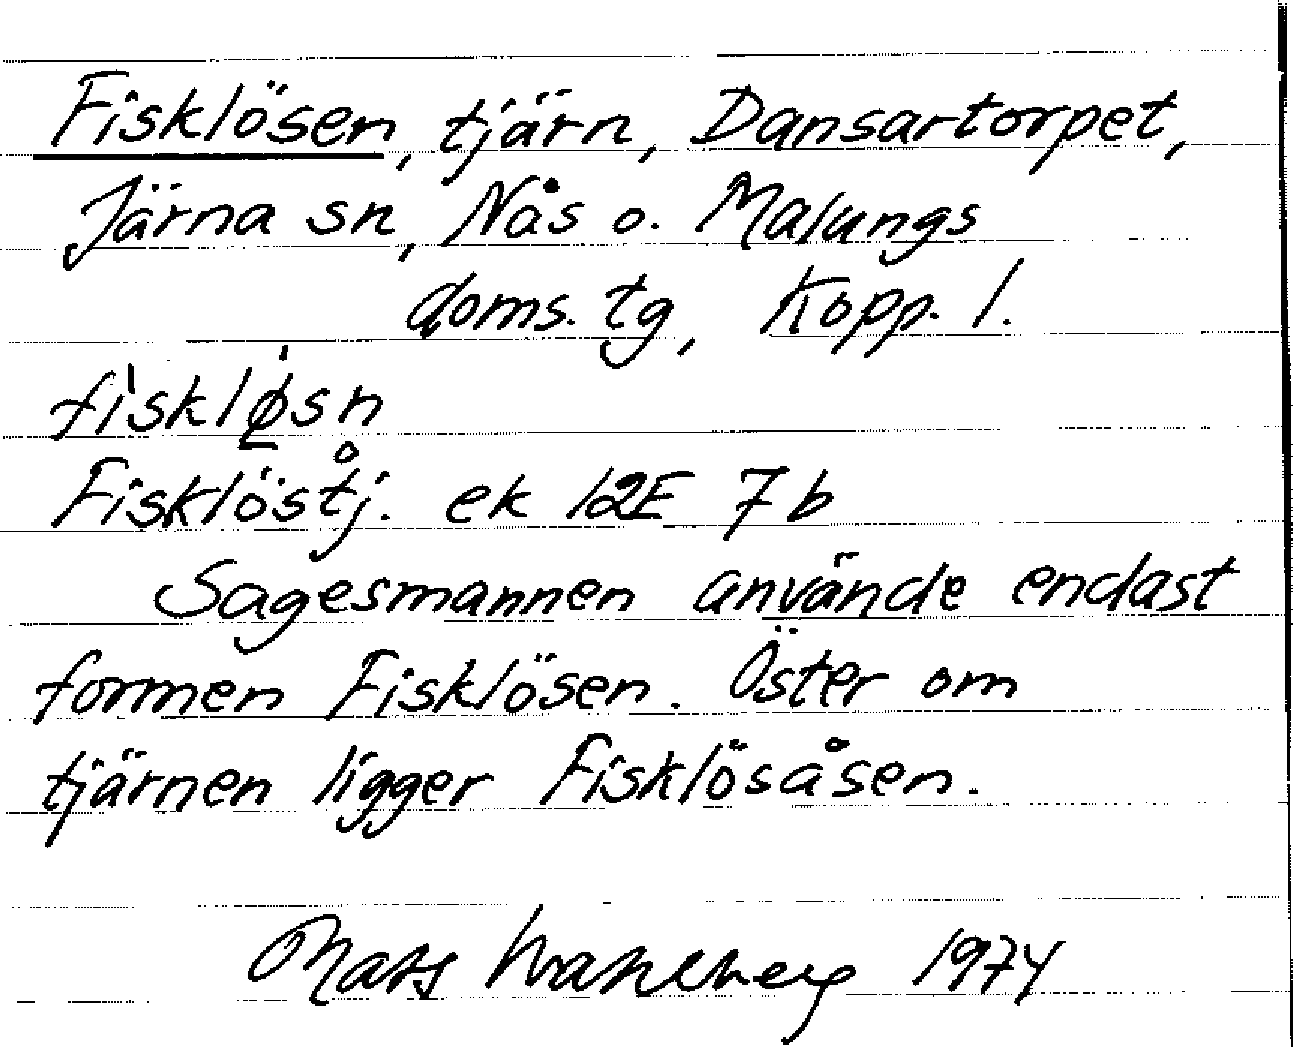 Fisklösen, tjärn, Dansartorpet,
Järna sn, Nås o. Malungs
doms. tg, Kopp. l.
fìsklø̱sn
Fisklöstj. ek 12E 7b
Sagesmannen använde endast
formen Fisklösen. Öster om
tjärnen ligger Fisklösåsen.
Mats Wahlberg 1974